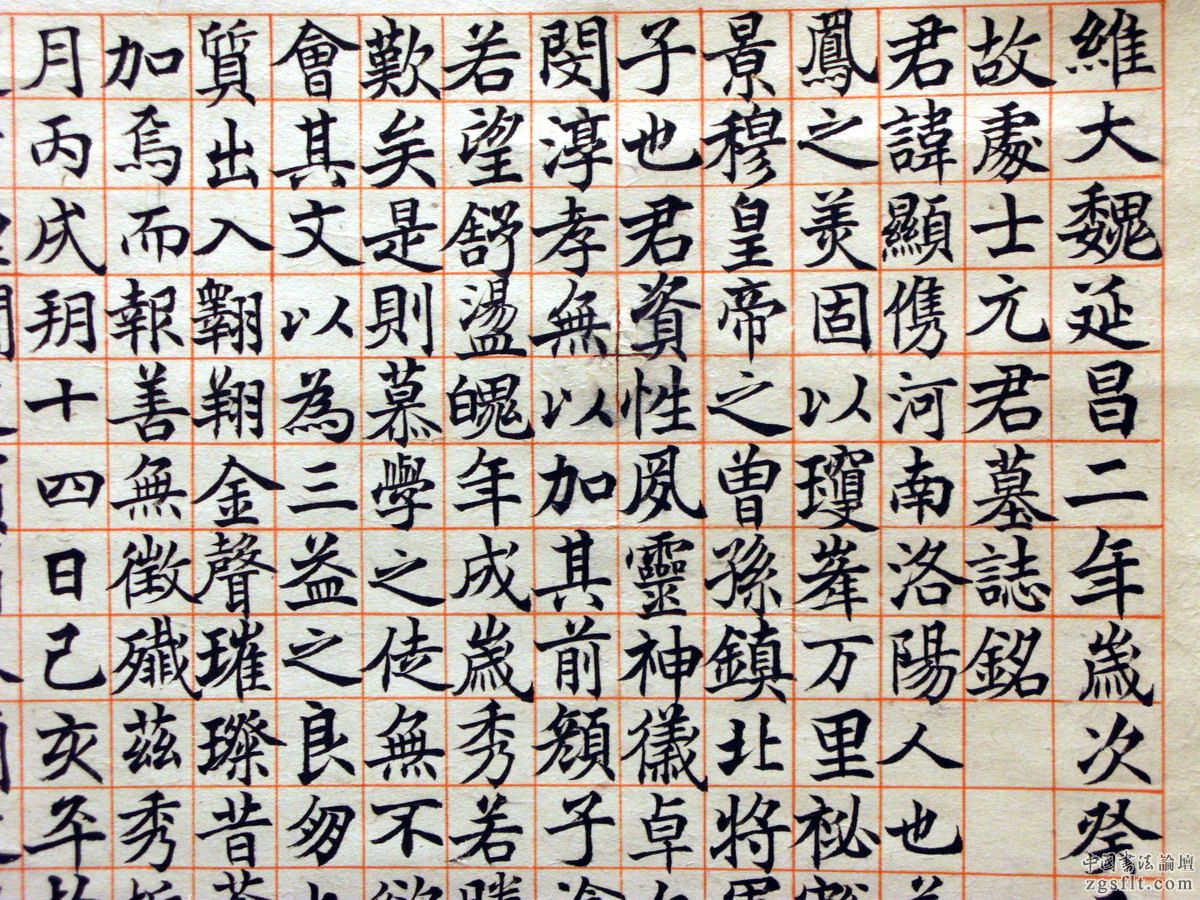 維大魏延昌二年歲次癸
故處士元君墓誌銘
君諱顯儁河南洛陽人也
鳳之美固以瓊峯万里祕
景穆皇帝之曾孫鎮北將
子也君資性夙靈神儀卓
閔淳孝無以加其前顏子
若望舒盪魄年成歲秀若
歎矣是則慕學之徒無不
會其文以為三益之良朋
質出入翾翔金聲璀璨昔
加焉而報善無徵殲茲秀
月丙戌朔十四日己亥卒
中國書法論壇
zgsflt.com